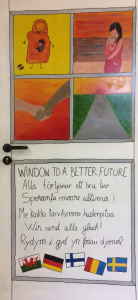 WINDOW TO A BETTER FUTURE
Alla förtjänar ett bra liv
Speranta moare ultima!
Me kaikki tarvitsemme huolenpitoa
Wir sind alle gleich!
Rydym i gyd yn falau dynol!